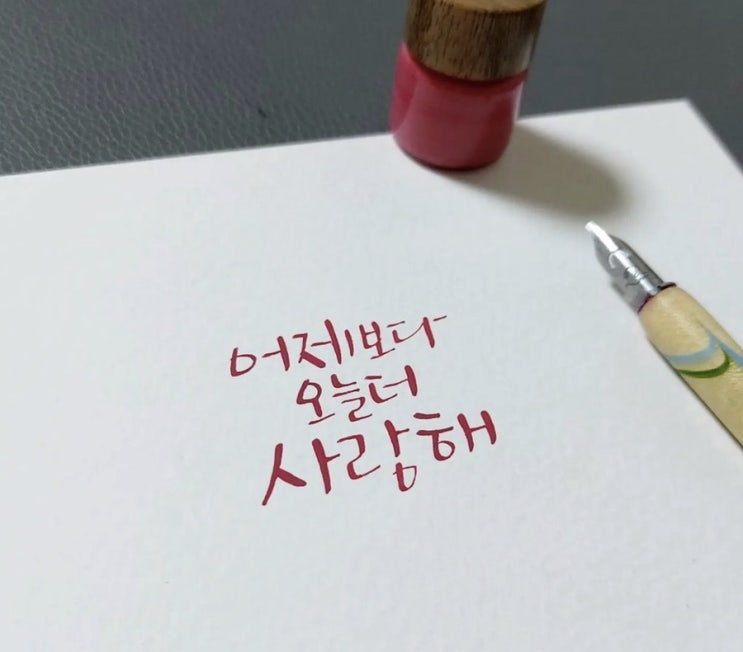 어제보다
오늘더
사랑해